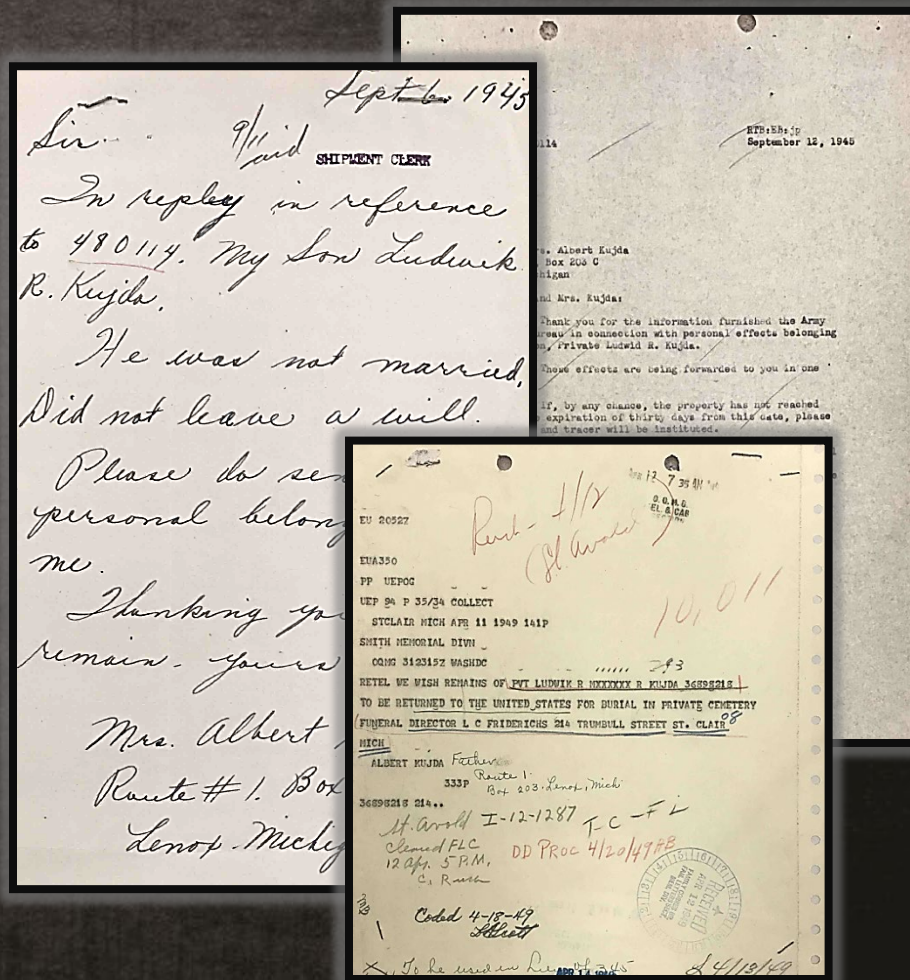 Sept 6. 1945
Sir
9/11
SHIPMENT CLERK
In repley in reference
to 480114. My Son Ludwik
R. Kujda.
He was not married,
Did not leave a will.
Please do sen
personal belong
me.
Thanking yo
remain. yours
Mrs. Albert
Route # 1. Box
Lenox. Michig
RTB:EB:jp
114
September 12, 1945
s. Albert Kujda
Box 203 C
higan
nd Mrs. Kujda:
Thank you for the information furnished the Army
ureau in connection with personal effects belonging
n, Private Ludwid R. Kujda.
These effects are being forwarded to you in one
If, by any chance, the property has not reached
expiration of thirty days from this date, please
and tracer will be instituted.
Rush - 4/12
St. Avold
10,011
EU 20527
EUA350
PP UEPOG
UEP 94 P 35/34 COLLECT
STCLAIR MICH APR 11 1949 141P
SMITH MEMORIAL DIVN
OQMG 312315Z WASHDC
293
RETEL WE WISH REMAINS OF PVT LUDWIK R MXXXXXX R KUJDA 36898218
TO BE RETURNED TO THE UNITED STATES FOR BURIAL IN PRIVATE CEMETERY
FUNERAL DIRECTOR L C FRIDERICHS 214 TRUMBULL STREET ST. CLAIR
MICH
ALBERT KUJDA Father
333P Route 1.
Box 203. Lenox, Mich
36898218 214..
St. Avold I-12-1287 T-C-FL
Cleared FLC
12 Apr. 5 P.M,
C. Rush
DD PROC 4/20/49
RECEIVED
APR 12 1949
Coded 4-18-49
To be used in
4/13/49